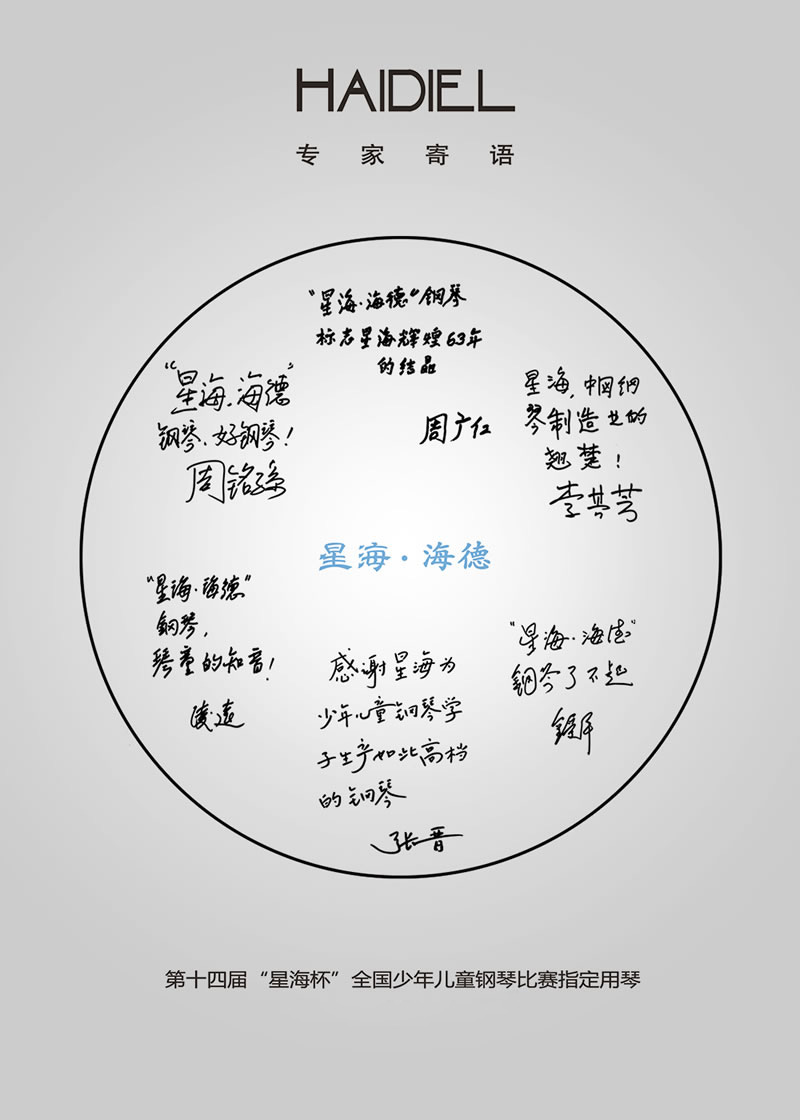 HAIDIEL
专家寄语
“星海·海德”钢琴
标志星海辉煌63年
的结晶
周广仁
“星海·海德”
钢琴、好钢琴！
周铭孙
星海,中国钢
琴制造业的
翘楚！
李其芳
星海·海德
“星海·海德”
钢琴,
琴童的知音！
凌远
感谢星海为
少年儿童钢琴学
子生产如此高档
的钢琴
张晋
“星海·海德”
钢琴了不起
第十四届“星海杯”全国少年儿童钢琴比赛指定用琴